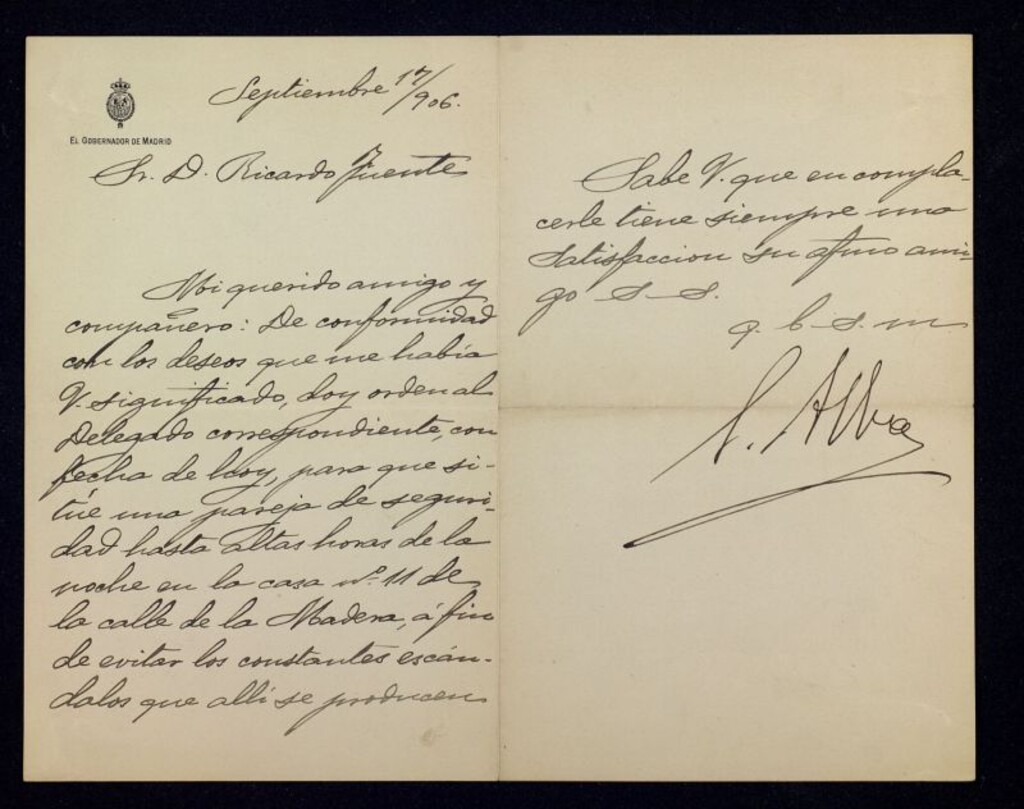 Septiembre 17/906.
EL GOBERNADOR DE MADRID
Sr. D. Ricardo Fuente
Mi querido amigo y
compañero: De conformidad
con los deseos que me había
V. significado, doy orden al
Delegado correspondiente, con
fecha de hoy, para que si-
túe una pareja de seguri-
dad hasta altas horas de la
noche en la casa nº 11 de
la calle de la Madera, á fin
de evitar los constantes escán-
dalos que allí se producen
Sabe V. que en compla-
cerle tiene siempre una
satisfaccion su afmo ami-
go S. S.
q. b. s. m
S. Alba